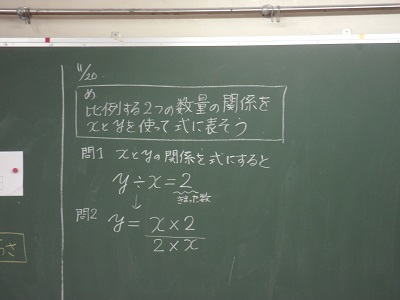 11/20
め
比例する2つの数量の関係を
xとyを使って式に表そう
問1 xとyの関係を式にすると
y÷x=2
きまった数
↓
問2 y= x×2
2×x
さ